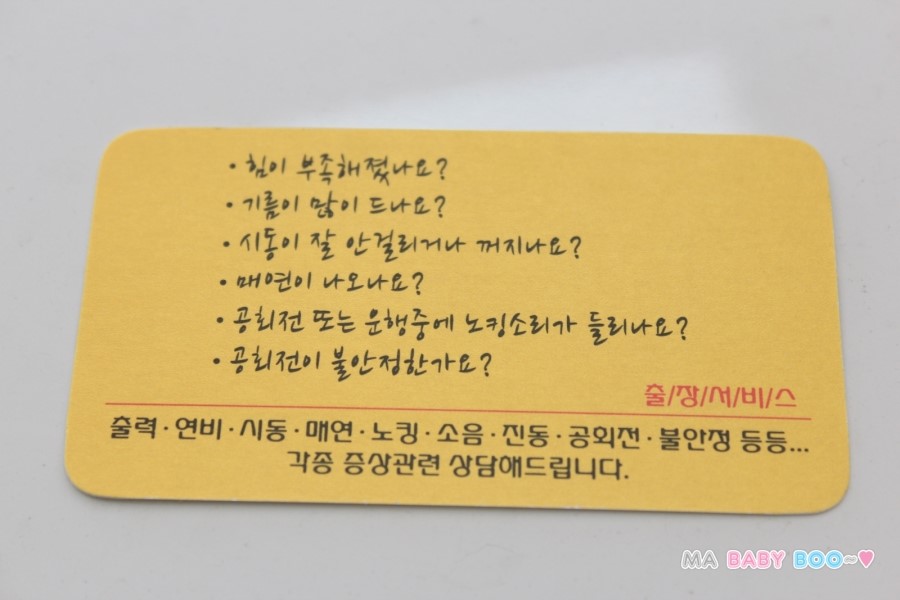 • 힘이 부족해졌나요?
• 기름이 많이 드나요?
• 시동이 잘 안걸리거나 꺼지나요?
• 매연이 나오나요?
• 공회전 또는 운행중에 노킹소리가 들리나요?
• 공회전이 불안정한가요?
출/장/서/비/스
출력·연비·시동·매연·노킹·소음·진동·공회전·불안정 등등...
각종 증상관련 상담해드립니다.
MA BABY BOO~♥